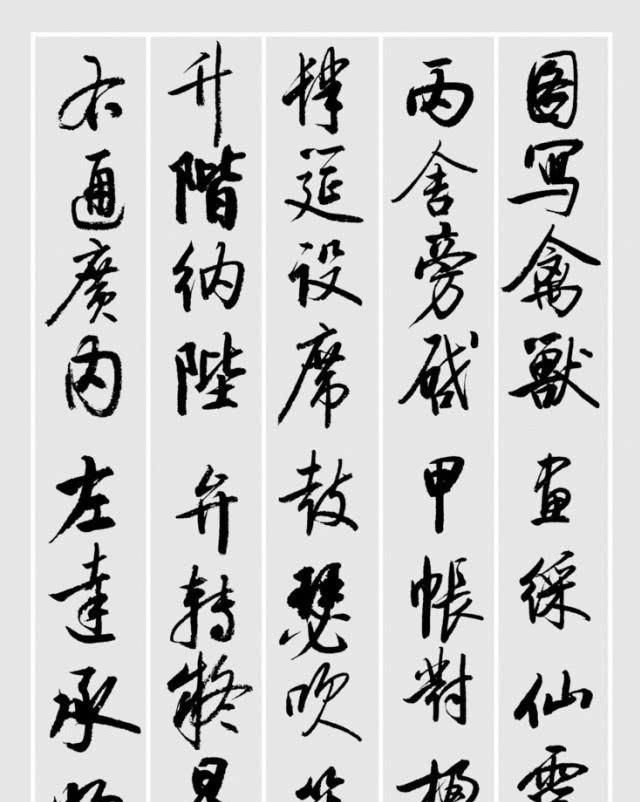 圖寫禽獸畫綵仙
丙舍旁啟甲帳對
肆筵設席鼓瑟吹
升階納陛弁轉疑
右通廣內左達承